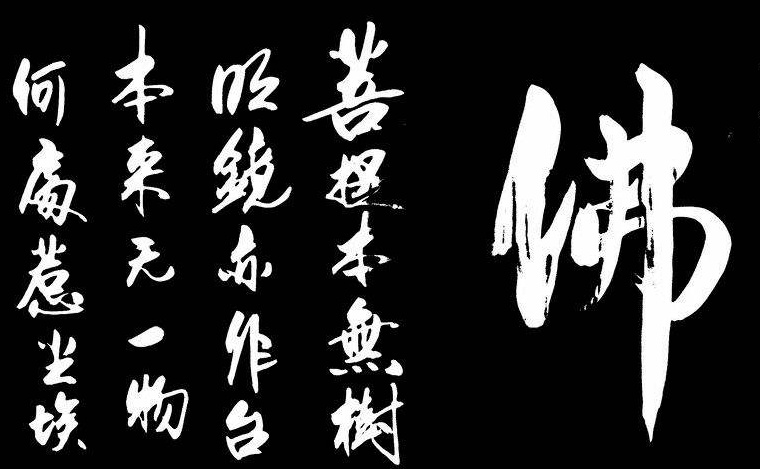 佛
菩提本無樹
明鏡亦作台
本来无一物
何處惹尘埃